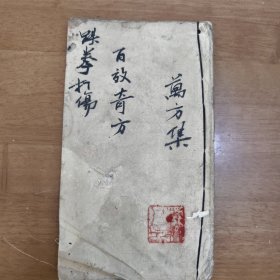 萬方集
百效奇方
跌拳打傷